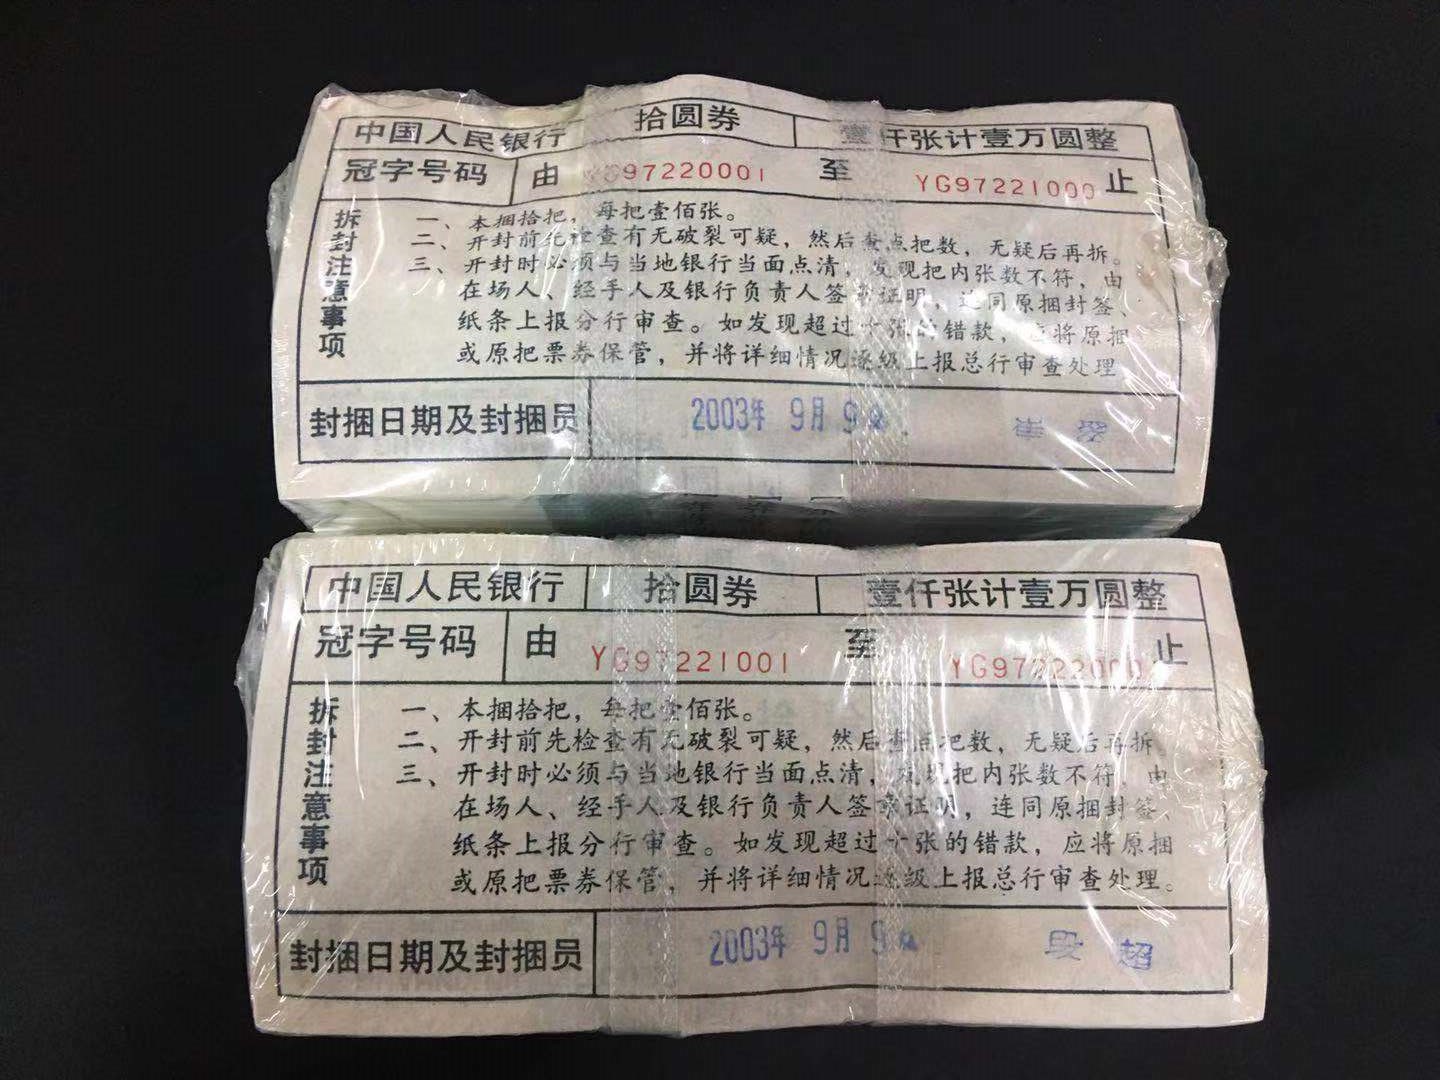 中国人民银行 拾圆券 壹仟张计壹万圆整
冠字号码 由 YG97220001 至 YG97221000 止
拆封注意事项
一、本捆拾把，每把壹佰张。
二、开封前先检查有无破裂可疑，然后查点把数，无疑后再拆。
三、开封时必须与当地银行当面点清，发现把内张数不符，由
在场人、经手人及银行负责人签章证明，连同原捆封签、
纸条上报分行审查。如发现超过十张的错款，应将原捆
或原把票券保管，并将详细情况逐级上报总行审查处理
封捆日期及封捆员 2003年 9月 9
中国人民银行 拾圆券 壹仟张计壹万圆整
冠字号码 由 YG97221001 至 YG97222000 止
拆封注意事项
一、本捆拾把，每把壹佰张。
二、开封前先检查有无破裂可疑，然后查点把数，无疑后再拆。
三、开封时必须与当地银行当面点清，发现把内张数不符，由
在场人、经手人及银行负责人签章证明，连同原捆封签、
纸条上报分行审查。如发现超过十张的错款，应将原捆
或原把票券保管，并将详细情况逐级上报总行审查处理。
封捆日期及封捆员 2003年 9月 9